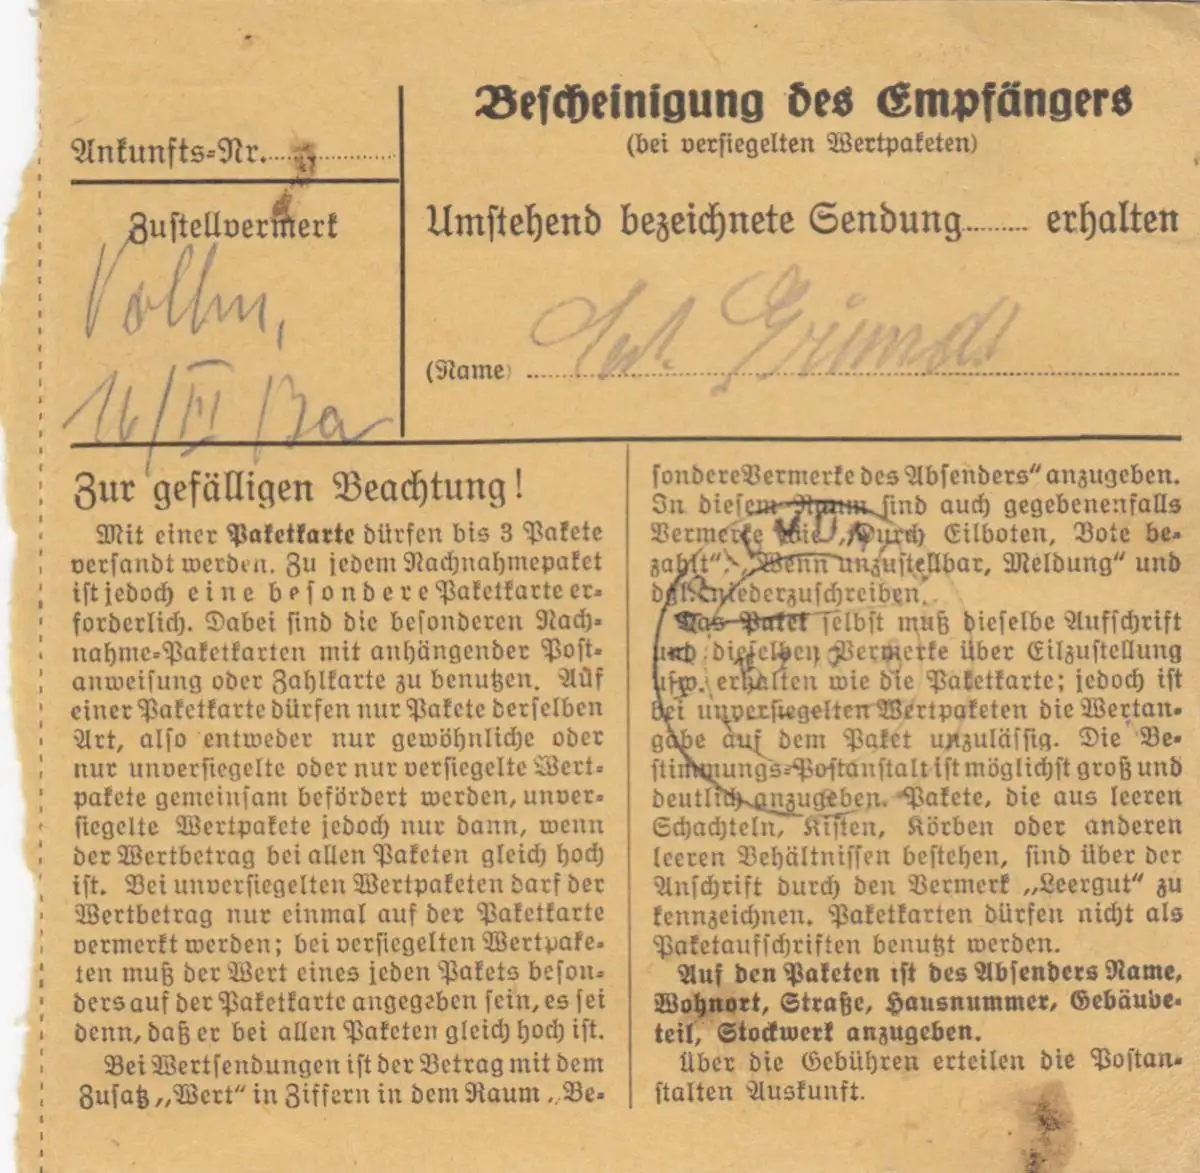 Bescheinigung des Empfängers
(bei versiegelten Wertpaketen)
Ankunfts-Nr.
Zustellvermerk
Umstehend bezeichnete Sendung........ erhalten
(Name)
16/XI
Zur gefälligen Beachtung!
Mit einer Paketkarte dürfen bis 3 Pakete
versandt werden. Zu jedem Nachnahmepaket
ist jedoch eine besondere Paketkarte er-
forderlich. Dabei sind die besonderen Nach-
nahme-Paketkarten mit anhängender Post-
anweisung oder Zahlkarte zu benutzen. Auf
einer Paketkarte dürfen nur Pakete derselben
Art, also entweder nur gewöhnliche oder
nur unversiegelte oder nur versiegelte Wert-
pakete gemeinsam befördert werden, unver-
siegelte Wertpakete jedoch nur dann, wenn
der Wertbetrag bei allen Paketen gleich hoch
ist. Bei unversiegelten Wertpaketen darf der
Wertbetrag nur einmal auf der Paketkarte
vermerkt werden; bei versiegelten Wertpake-
ten muß der Wert eines jeden Pakets beson-
ders auf der Paketkarte angegeben sein, es sei
denn, daß er bei allen Paketen gleich hoch ist.
Bei Wertsendungen ist der Betrag mit dem
Zusatz „Wert“ in Ziffern in dem Raum „Be-
sondere Vermerke des Absenders“ anzugeben.
In diesem Raum sind auch gegebenenfalls
Vermerke wie „Durch Eilboten, Bote be-
zahlt“, „Wenn unzustellbar, Meldung“ und
dgl. niederzuschreiben.
Das Paket selbst muß dieselbe Aufschrift
und dieselben Vermerke über Eilzustellung
usw. erhalten wie die Paketkarte; jedoch ist
bei unversiegelten Wertpaketen die Wertan-
gabe auf dem Paket unzulässig. Die Be-
stimmungs-Postanstalt ist möglichst groß und
deutlich anzugeben. Pakete, die aus leeren
Schachteln, Kisten, Körben oder anderen
leeren Behältnissen bestehen, sind über der
Anschrift durch den Vermerk „Leergut“ zu
kennzeichnen. Paketkarten dürfen nicht als
Paketaufschriften benutzt werden.
Auf den Paketen ist des Absenders Name,
Wohnort, Straße, Hausnummer, Gebäude-
teil, Stockwerk anzugeben.
Über die Gebühren erteilen die Postan-
stalten Auskunft.